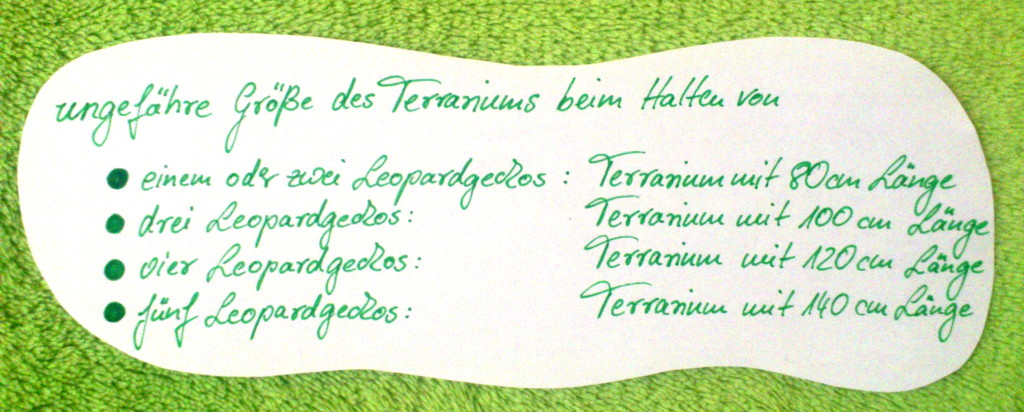 ungefähre Größe des Terrariums beim Halten von
● einem oder zwei Leopardgeckos : Terrarium mit 80 cm Länge
● drei Leopardgeckos: Terrarium mit 100 cm Länge
● vier Leopardgeckos: Terrarium mit 120 cm Länge
● fünf Leopardgeckos: Terrarium mit 140 cm Länge